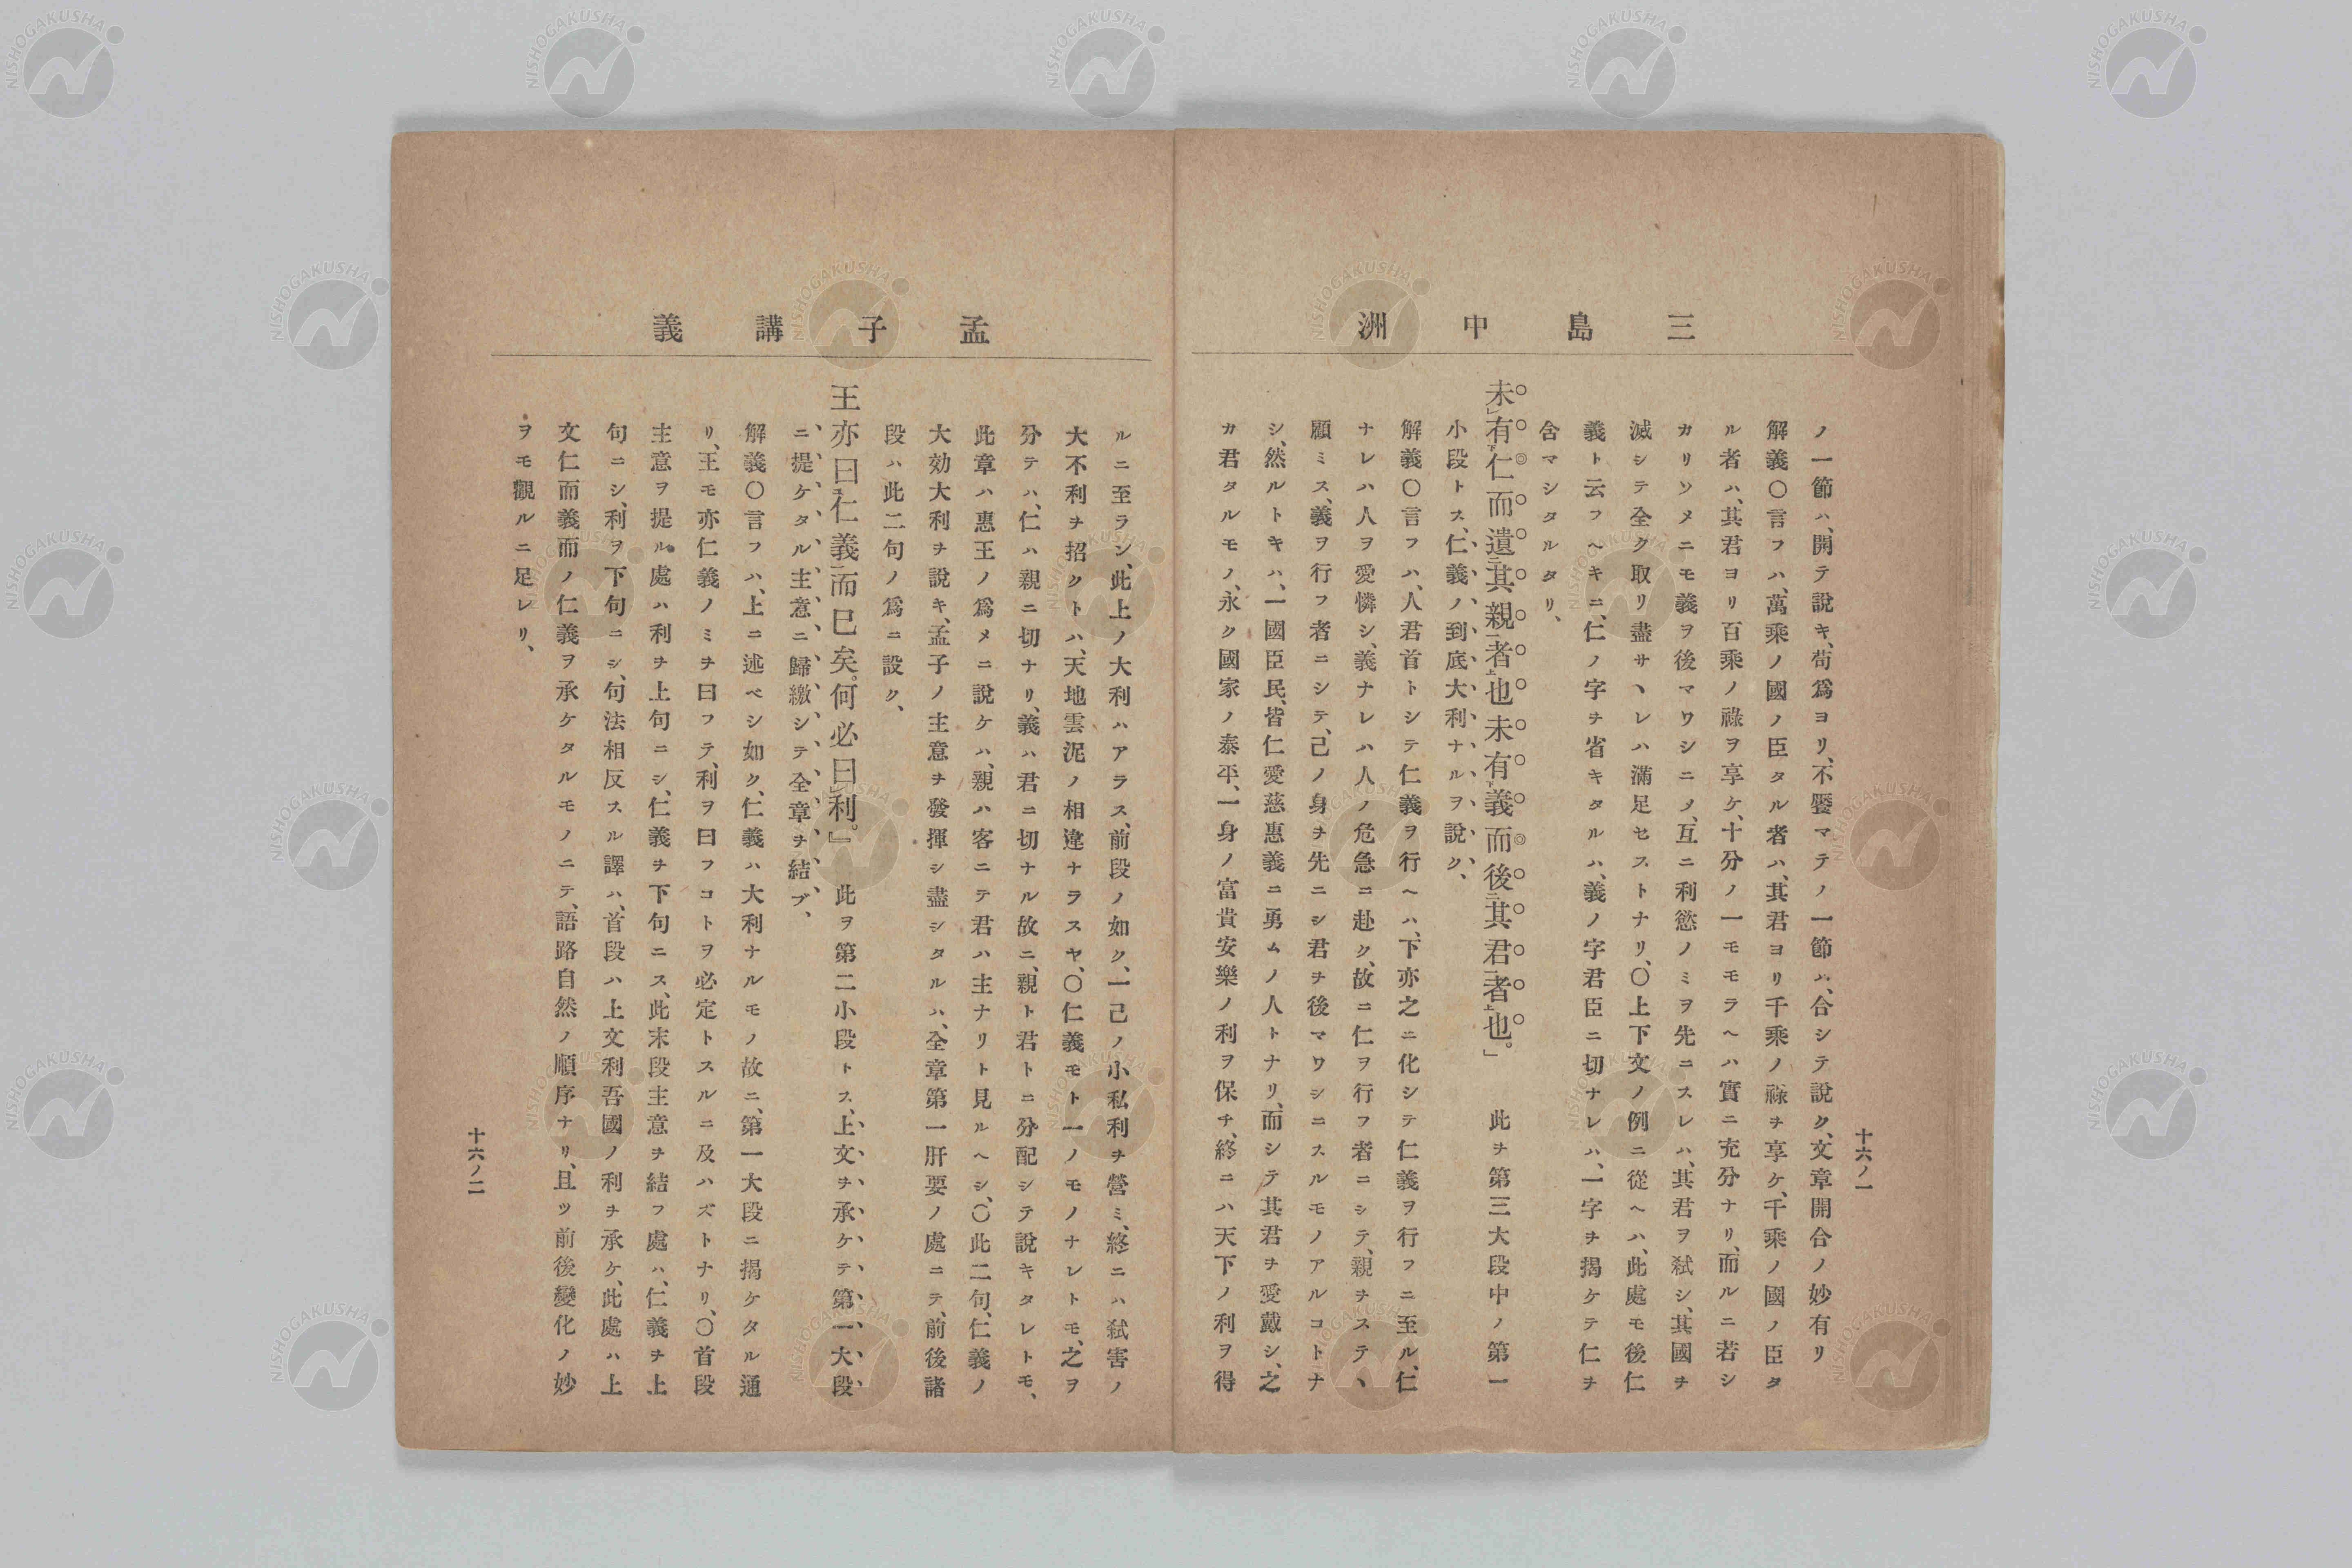 三島中洲
ノ一節ハ、開テ說キ、苟爲ヨリ、不饜マテノ一節ハ、合シテ說ク、文章開合ノ妙有リ
解義〇言フハ、萬乘ノ國ノ臣タル者ハ、其君ヨリ千乘ノ祿ヲ享ケ、千乘ノ國ノ臣タ
ル者ハ、其君ヨリ百乘ノ祿ヲ享ケ、十分ノ一モモラヘハ實ニ充分ナリ、而ルニ若シ
カリソメニモ義ヲ後マワシニメ、互ニ利慾ノミヲ先ニスレハ、其君ヲ弑シ、其國ヲ
滅シテ全ク取リ盡サヽレハ滿足セストナリ、〇上下文ノ例ニ從ヘハ、此處モ後仁
義ト云フヘキニ、仁ノ字ヲ省キタルハ、義ノ字君臣ニ切ナレハ、一字ヲ揭ケテ仁ヲ
含マシタルタリ、
未レ有下仁而遺二其親一者上也未レ有下義而後二其君一者上也。」 此ヲ第三大段中ノ第一
小段トス、仁義ノ到底大利ナルヲ說ク、
解義〇言フハ、人君首トシテ仁義ヲ行ヘハ、下亦之ニ化シテ仁義ヲ行フニ至ル、仁
ナレハ人ヲ愛憐シ、義ナレハ人ノ危急ニ赴ク、故ニ仁ヲ行フ者ニシテ、親ヲステヽ
顧ミス、義ヲ行フ者ニシテ、己ノ身ヲ先ニシ君ヲ後マワシニスルモノアルコトナ
シ、然ルトキハ、一國臣民、皆仁愛慈惠義ニ勇ムノ人トナリ、而シテ其君ヲ愛戴シ、之
カ君タルモノ、永ク國家ノ泰平、一身ノ富貴安樂ノ利ヲ保チ、終ニハ天下ノ利ヲ得
十六ノ一
孟子講義
ルニ至ラン、此上ノ大利ハアラス、前段ノ如ク、一己ノ小私利ヲ營ミ、終ニハ弑害ノ
大不利ヲ招クトハ、天地雲泥ノ相違ナラスヤ、〇仁義モト一ノモノナレトモ、之ヲ
分テハ、仁ハ親ニ切ナリ、義ハ君ニ切ナル故ニ、親ト君トニ分配シテ說キタレトモ、
此章ハ惠王ノ爲メニ說ケハ、親ハ客ニテ君ハ主ナリト見ルヘシ、〇此二句、仁義ノ
大効大利ヲ說キ、孟子ノ主意ヲ發揮シ盡シタルハ、全章第一肝要ノ處ニテ、前後諸
段ハ此二句ノ爲ニ設ク、
王亦曰二仁義一而已矣。何必曰レ利。』 此ヲ第二小段トス、上文ヲ承ケテ第一大段
ニ提ケタル主意ニ歸繳シテ全章ヲ結ブ、
解義〇言フハ、上ニ述ベシ如ク、仁義ハ大利ナルモノ故ニ、第一大段ニ揭ケタル通
リ、王モ亦仁義ノミヲ曰フテ、利ヲ曰フコトヲ必定トスルニ及ハズトナリ、〇首段
主意ヲ提ル處ハ利ヲ上句ニシ、仁義ヲ下句ニス、此末段主意ヲ結フ處ハ、仁義ヲ上
句ニシ、利ヲ下句ニシ、句法相反スル譯ハ、首段ハ上文利吾國ノ利ヲ承ケ、此處ハ上
文仁而義而ノ仁義ヲ承ケタルモノニテ、語路自然ノ順序ナリ、且ツ前後變化ノ妙
ヲモ觀ルニ足レリ、
十六ノ二